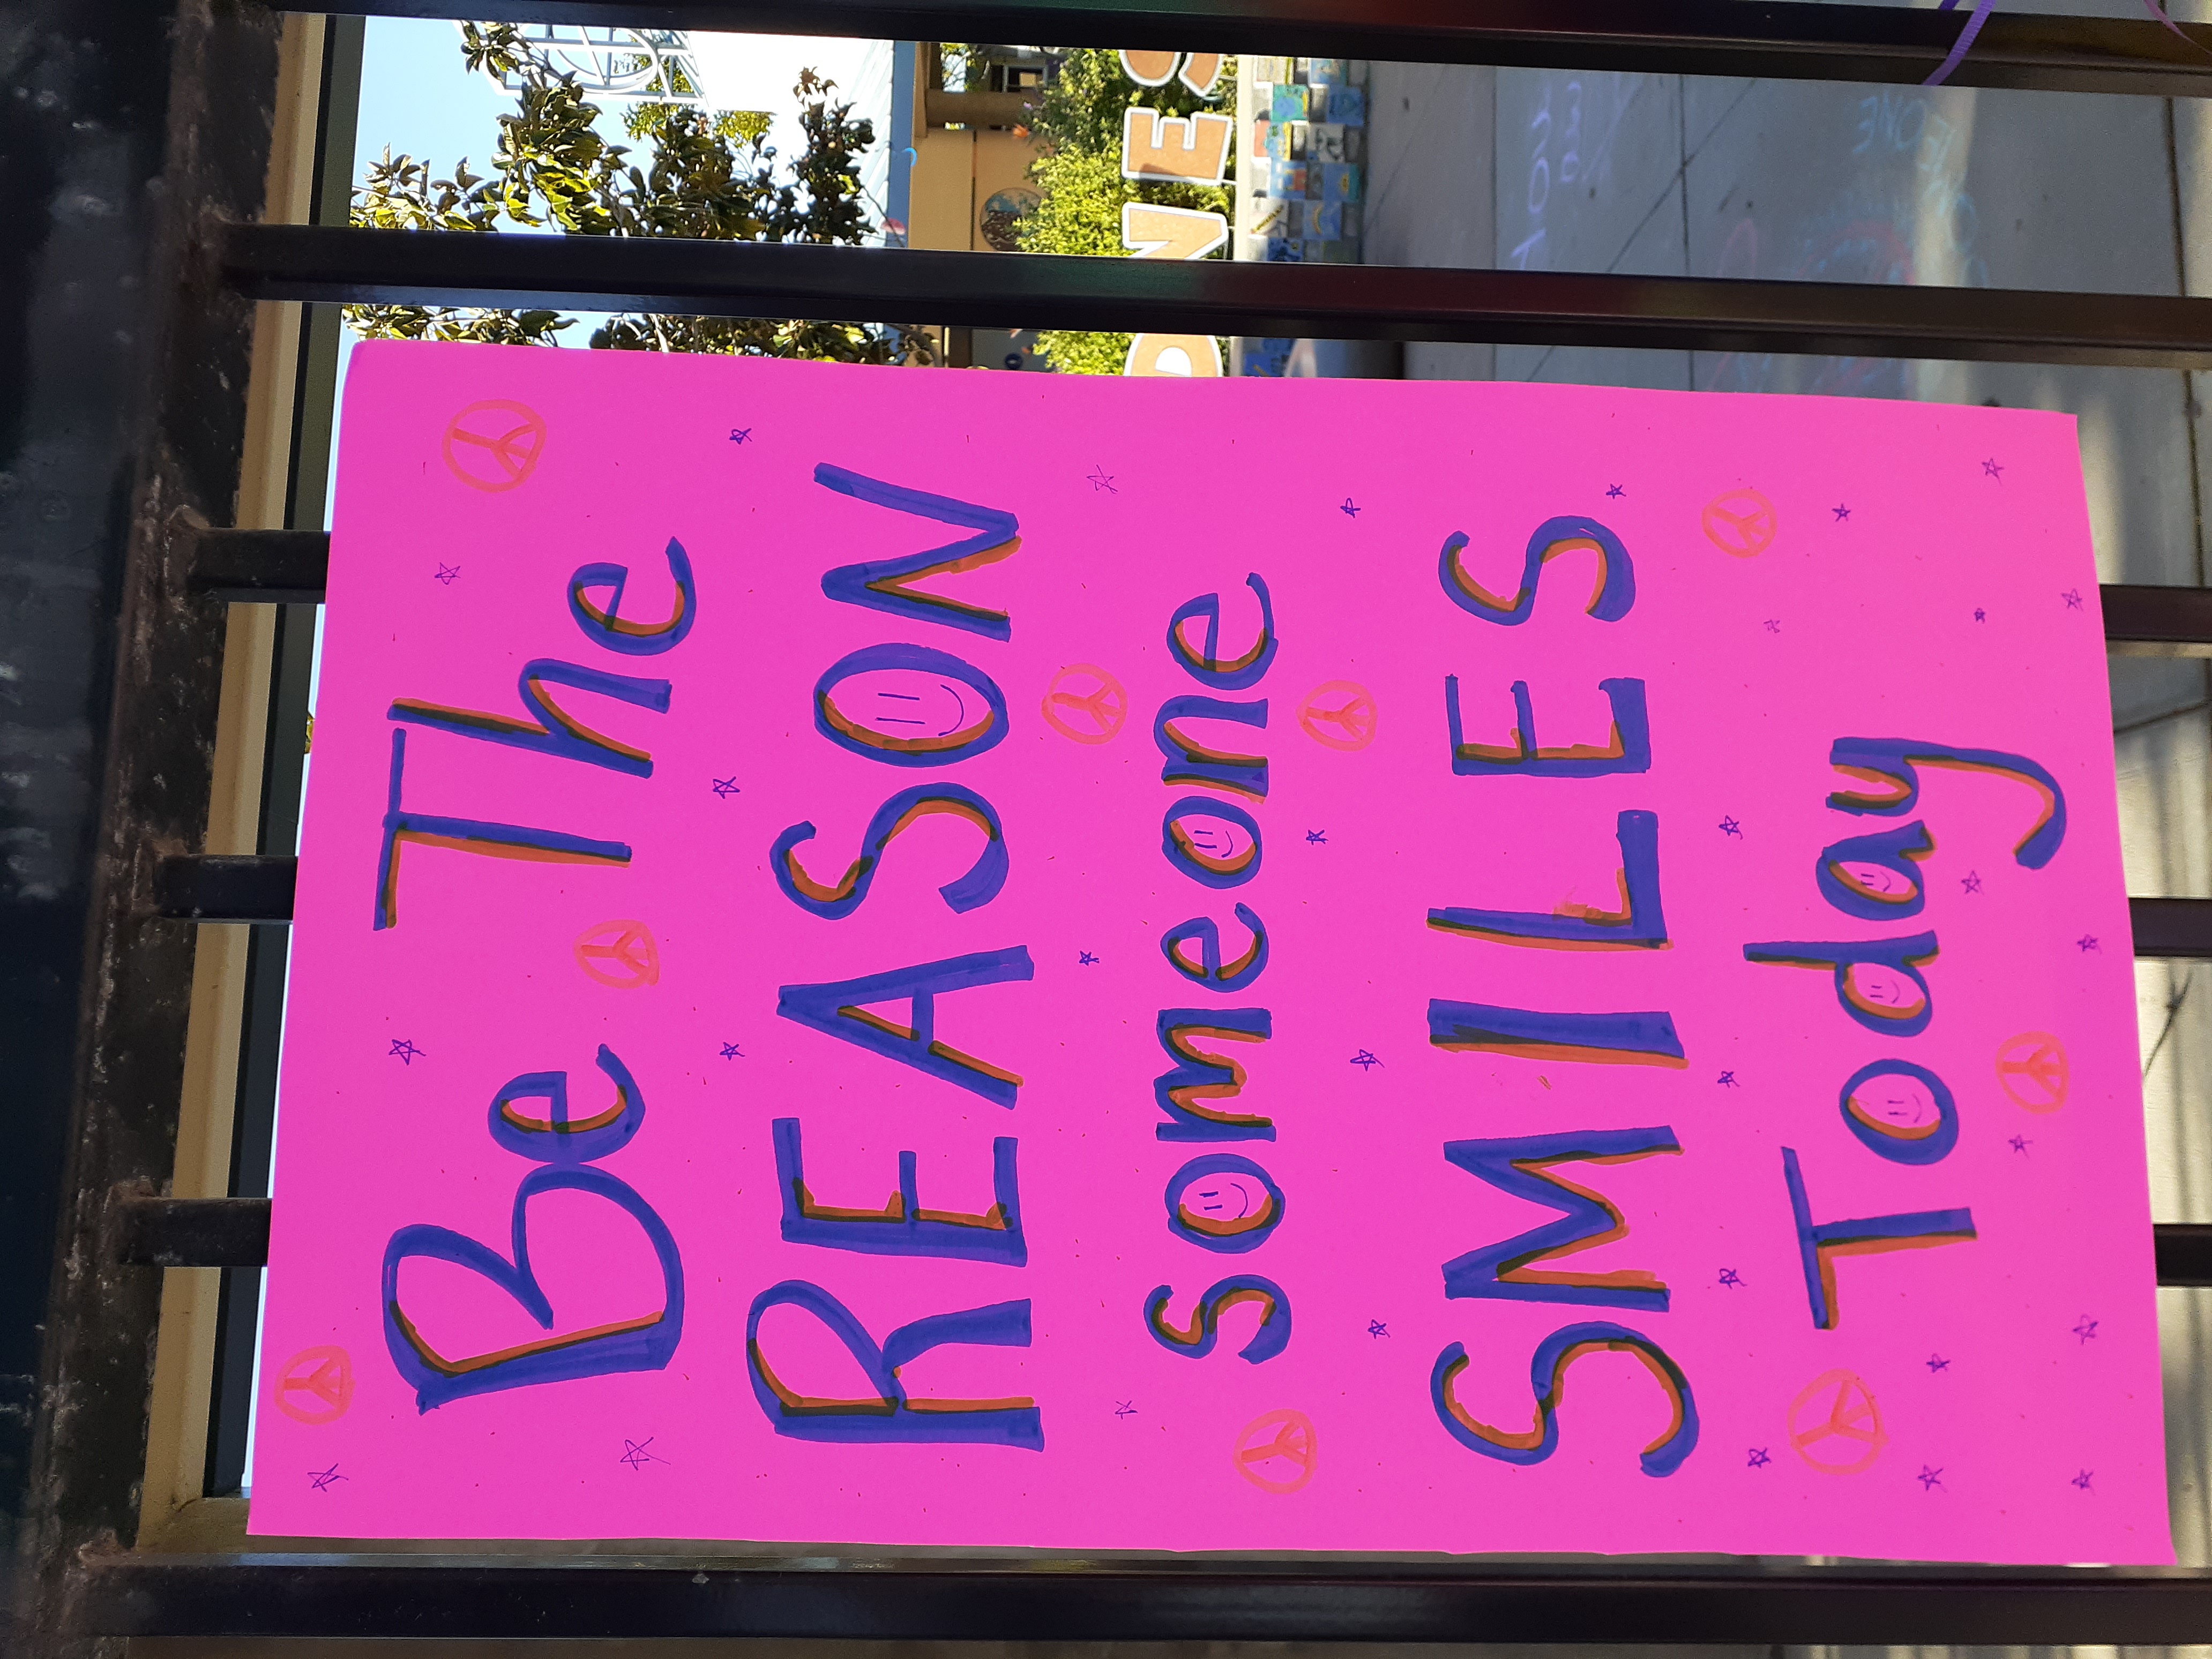 Be The
REASON
Someone
SMILES
Today
DNES